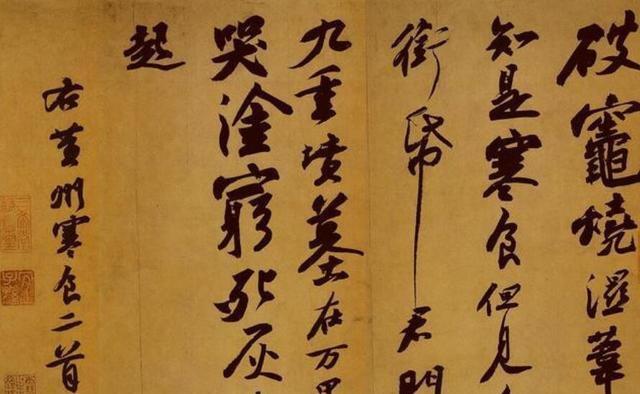 破竈燒濕葦
知是寒食但見
銜帋君門
九重墳墓在万里
哭塗窮死灰
起
右黄州寒食二首